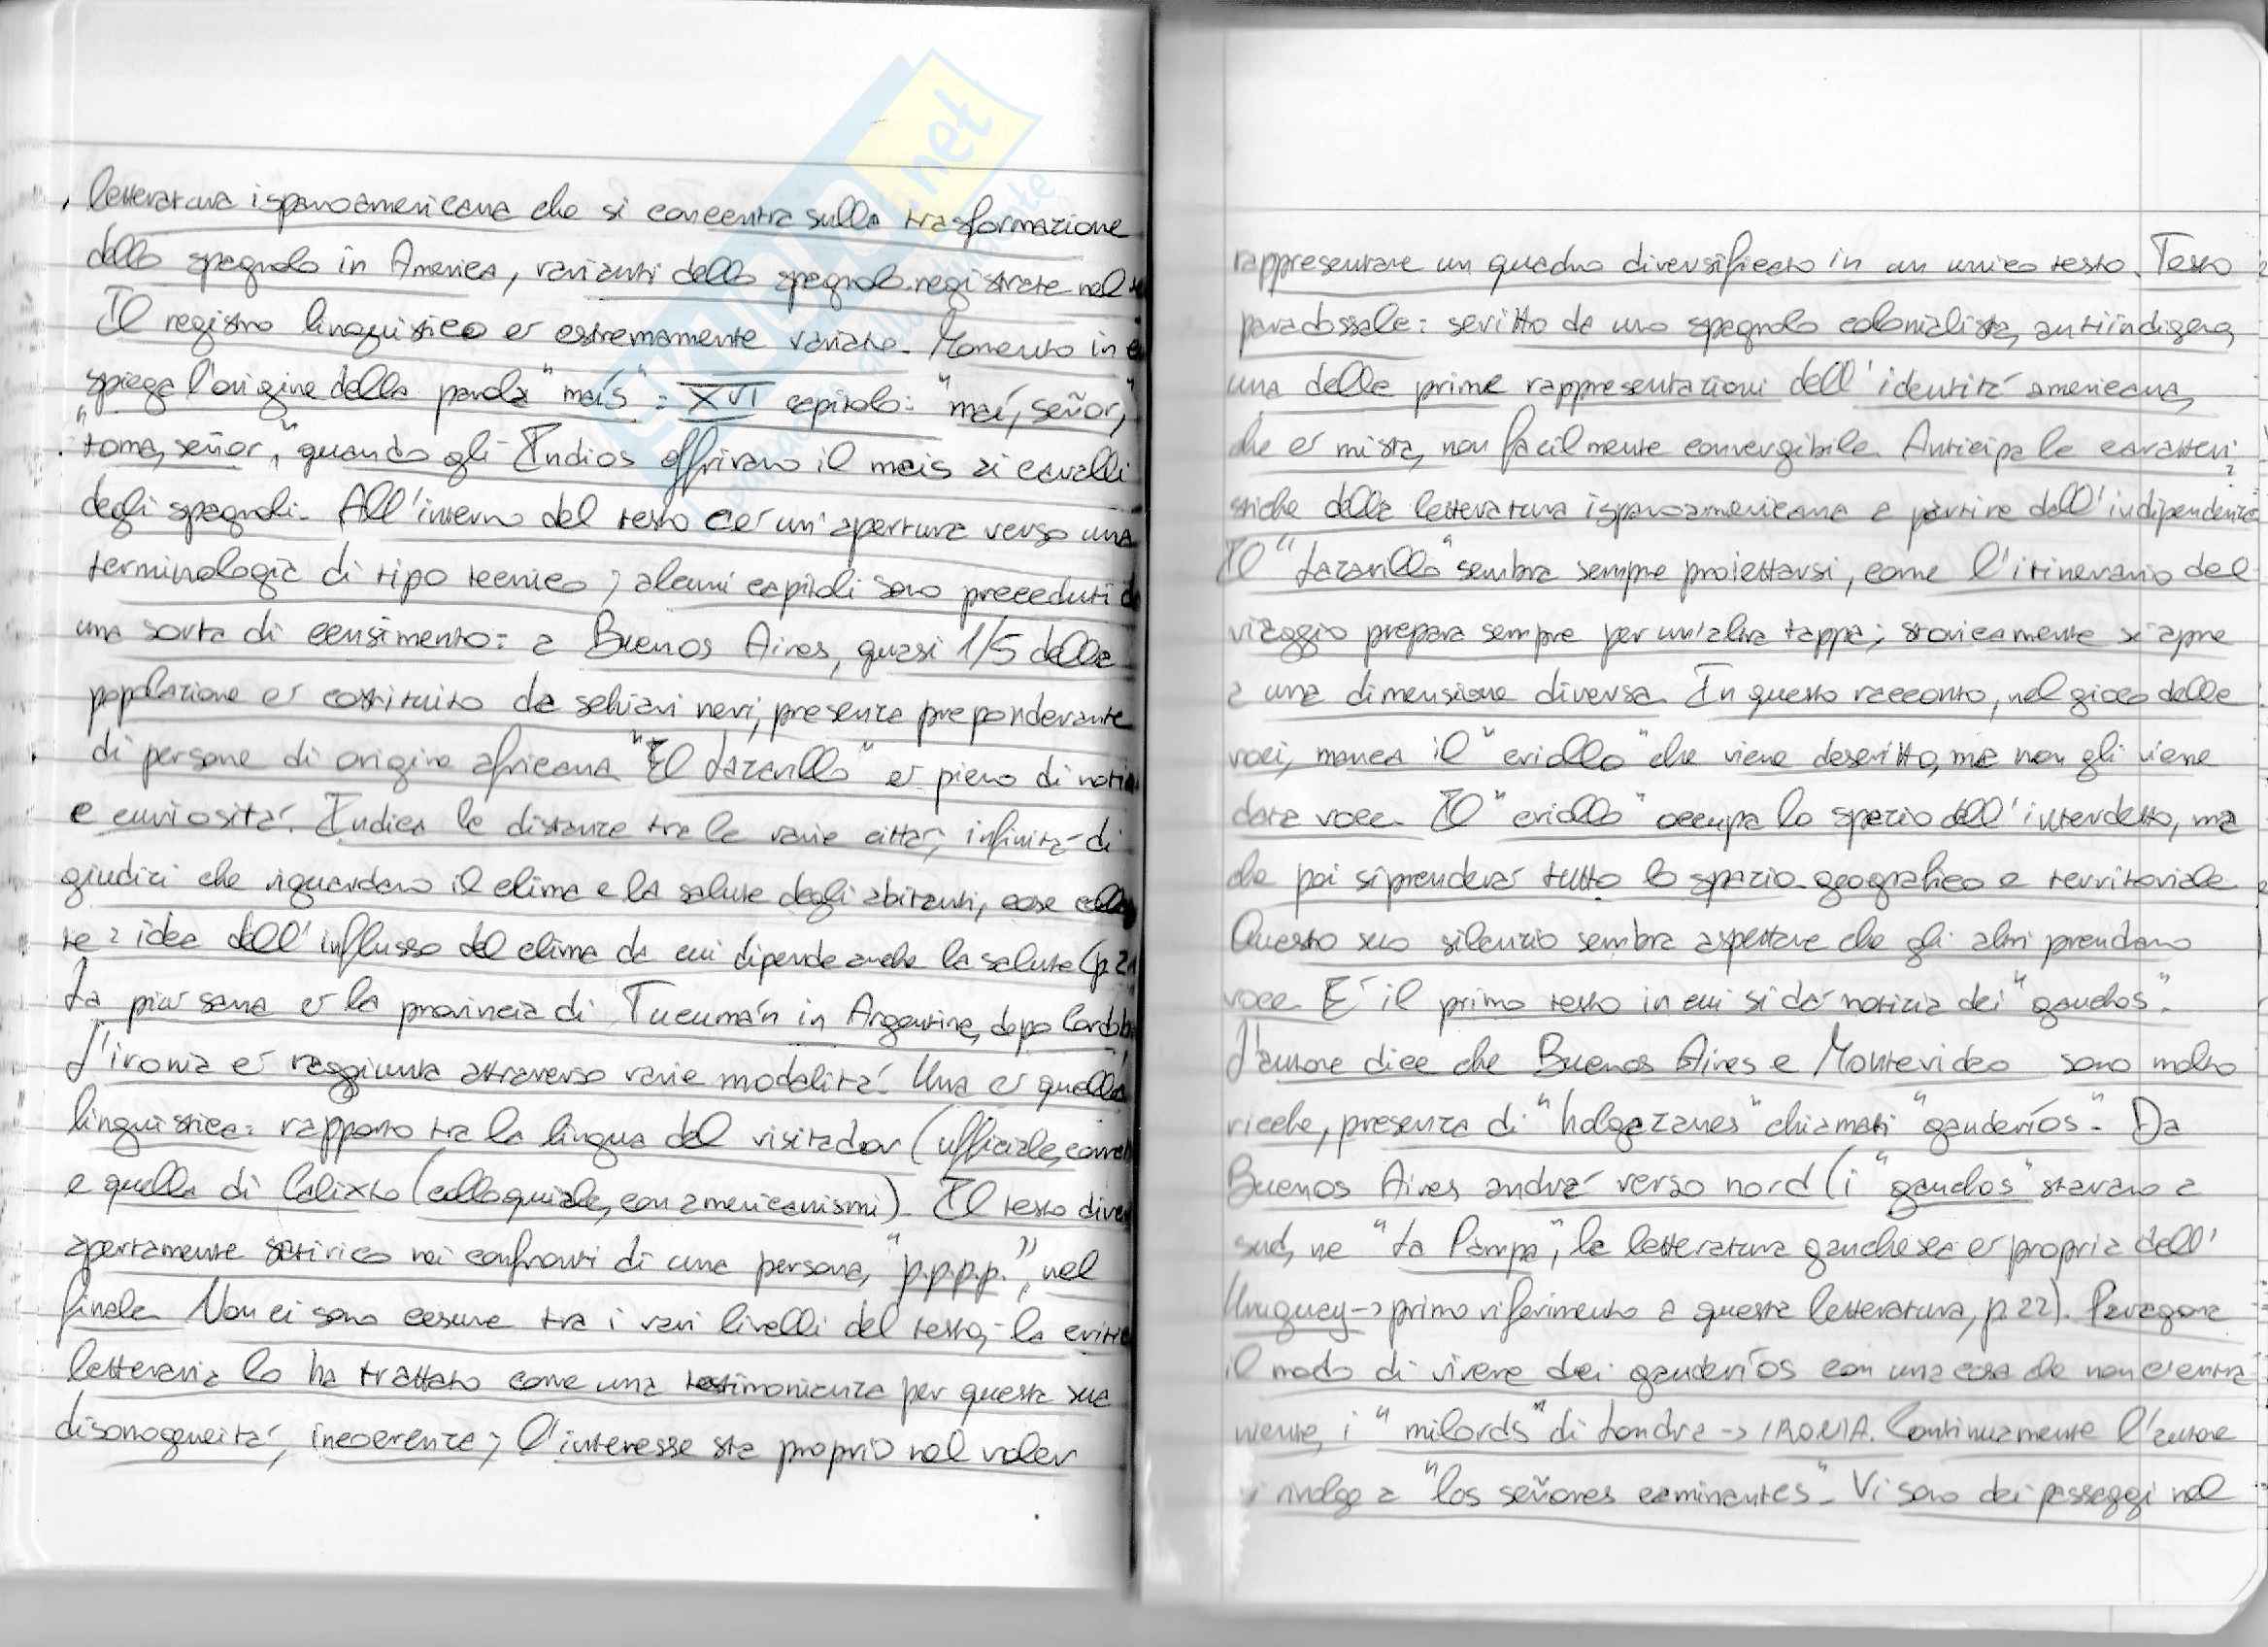 letteratura ispanoamericana che si concentra sulla trasformazione
dello spagnolo in America, varianti dello spagnolo registrate nel
Il registro linguistico é estremamente variato. Momento in
spiega l'origine della parola "maís": XVI capitolo: "maí, señor,"
"toma, señor," quando gli Indios offrivano il mais ai cavalli
degli spagnoli. All'interno del testo c'é un'apertura verso una
terminologia di tipo tecnico; alcuni capitoli sono preceduti
una sorta di censimento: a Buenos Aires, quasi 1/5 della
popolazione é costituito da schiavi neri, presenza preponderante
di persone di origine africana. "El Lazarillo" é pieno di
e curiositá. Indica le distanze tra le varie cittá; infinitá di
giudizi che riguardano il clima e la salute degli abitanti, cose
te: idea dell'influsso del clima da cui dipende anche la salute (p. 21
La piú sana é la provincia di Tucumán in Argentina, dopo Cordoba
L'ironia é raggiunta attraverso varie modalitá. Una é quella
linguistica: rapporto tra la lingua del visitador (ufficiale,
e quella di Calixto (colloquiale, con americanismi). Il testo
apertamente satirico nei confronti di una persona, "p.p.p.p.", nel
finale. Non ci sono cesure tra i vari livelli del testo; la
letteraria lo ha trattato come una testimonianza per questa sua
disomogeneitá, incoerenza; l'interesse sta proprio nel voler
rappresentare un quadro diversificato in un unico testo. Testo
paradossale: scritto da uno spagnolo colonialista, antiindigeno,
una delle prime rappresentazioni dell'identitá americana,
che é mista, non facilmente convergibile. Anticipa le caratteri
stiche della letteratura ispanoamericana a partire dall'indipendenza
Il "Lazarillo" sembra sempre proiettarsi, come l'itinerario del
viaggio prepara sempre per un'altra tappa; storicamente si apre
a una dimensione diversa. In questo racconto, nel gioco delle
voci, manca il "criollo" che viene descritto, ma non gli viene
data voce. Il "criollo" occupa lo spazio dell'interdetto, ma
che poi si prenderá tutto lo spazio geografico e territoriale.
Questo suo silenzio sembra aspettare che gli altri prendano
voce. É il primo testo in cui si dá notizia dei "gauchos".
L'autore dice che Buenos Aires e Montevideo sono molto
ricche, presenza di "holgazanes" chiamati "gauderíos". Da
Buenos Aires andrá verso nord (i "gauchos" stavano a
sud, ne "La Pampa"; la letteratura gauchesca é propria dell'
Uruguay -> primo riferimento a questa letteratura, p. 22). Paragona
il modo di vivere dei gauderíos con una cosa che non c'entra
niente, i "milords" di Londra -> IRONIA. Continuamente l'autore
si rivolge a "los señores caminantes". Vi sono dei passaggi nel
net